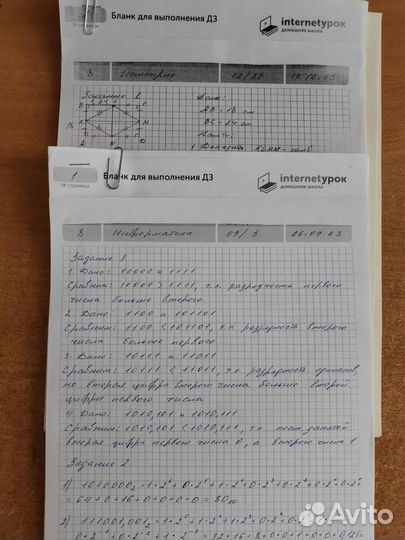 № страницы
Бланк для выполнения ДЗ
internetурок
домашняя школа
8 Геометрия 19.12.23
Задание
Дано:
AB = 18 см
BC = 24 см
Найти:
1. Доказать KLMN - ромб
1
№ страницы
Бланк для выполнения ДЗ
internetурок
домашняя школа
8 Информатика 09/3 26.09.23
Задание 1
1. Дано: 10000 и 1111
Сравним: 10000 > 1111, т.к. разрядность первого
числа больше второго.
2. Дано: 1100 и 101101
Сравним: 1100 < 101101, т.к разрядность второго
числа больше первого
3. Дано: 10111 и 11011
Сравним: 10111 < 11011, т.к. разрядность одинаков,
но вторая цифра второго числа больше второй
цифры первого числа
4. Дано: 1010,101 и 1010,111
Сравним: 1010,101 < 1010,111, т.к после запятой
вторая цифра первого числа 0, а второго числа 1
Задание 2
1) 1010000₂ = 1·2⁶ + 0·2⁵ + 1·2⁴ + 0·2³ + 0·2² + 0·2¹ + 0·2⁰
= 64 + 0 + 16 + 0 + 0 + 0 = 80₁₀
2) 111001,001₂ = 1·2⁵ + 1·2⁴ + 1·2³ + 0·2² + 0·2¹ + 1·2⁰
0·2⁻¹ + 0·2⁻² + 1·2⁻³ = 32 + 16 + 8 + 0 + 0 + 1 + 0 + 0 + 0,125
Avito